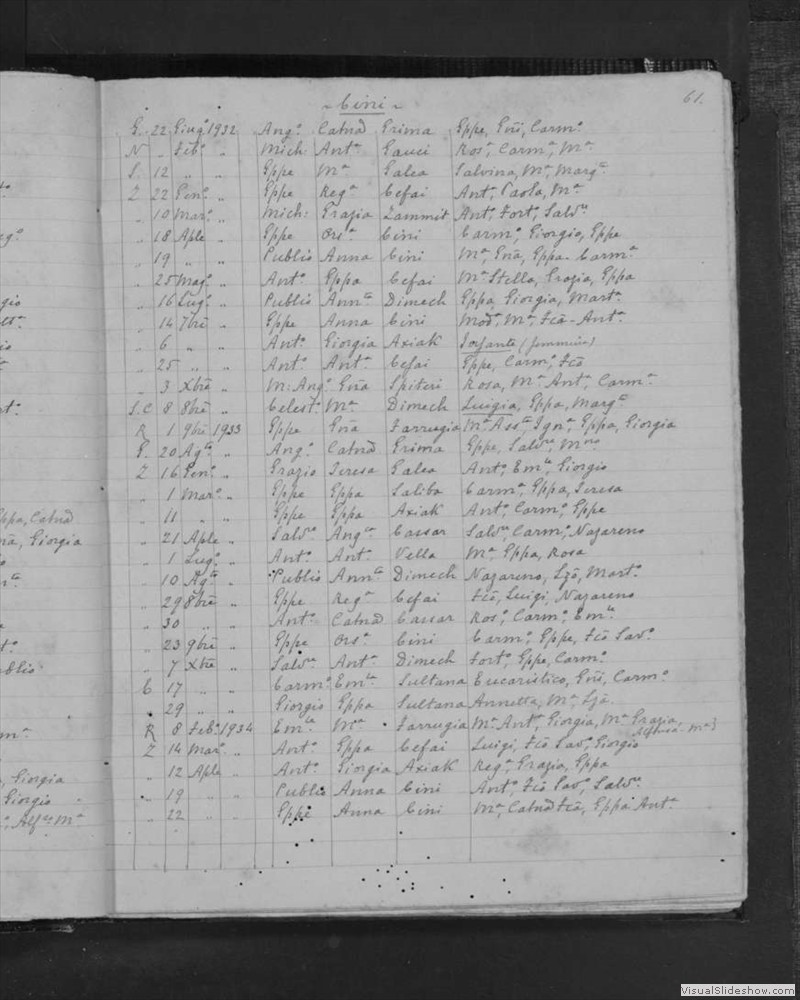 - Cini -
61.
G. 22 Giug.o 1932 Ang.o Catna Grima Gppe, Gni, Carm.o
N „ Feb.o „ Mich: Ant.a Gauci Ros.a, Carm.a, M.a
S. 12 „ „ Gppe M.a Galea Salvina, M.a, Marg.ta
Z 22 Gen.o „ Gppe Reg.a Cefai Ant.o, Paola, M.a
„ 10 Mar.o „ Mich: Grazia Zammit Ant.o, Fort.o, Salv.re
„ 18 Aple „ Gppe Ors.a Cini Carm.o, Giorgio, Gppe
„ 19 „ „ Publio Anna Cini M.a, Gna, Gppa. Carm.a
„ 25 Mag.o „ Ant.o Gppa Cefai M.a Stella, Grazia, Gppa
„ 16 Lug.o „ Publio Ann.ta Dimech Gppa, Giorgia, Mart.a
„ 14 7bre „ Gppe Anna Cini M.a, Fca - Ant.a
„ 6 „ „ Ant.o Giorgia Axiak (femmina)
„ 25 „ „ Ant.o Ant.a Cefai Gppe, Carm.o, Fco
„ 3 Xbre „ M: Ang.o Gna Spiteri Rosa, M.a Ant.a, Carm.a
S.C 8 8bre „ Celest.o M.a Dimech Luigia, Gppa, Marg.ta
R 1 9bre 1933 Gppe Gna Farrugia M.a Ass.ta, Ign.a, Gppa, Giorgia
G. 20 Ag.to „ Ang.o Catna Grima Gppe, Salv.re, M.no
Z 16 Gen.o „ Grazio Teresa Galea Ant.o, Em.le, Giorgio
„ 1 Mar.o „ Gppe Gppa Saliba Carm.a, Gppa, Teresa
„ 11 „ „ Gppe Gppa Axiak Ant.o, Carm.o, Gppe
„ 21 Aple „ Salv.re Ang.ca Cassar Salv.re, Carm.o, Nazareno
„ 1 Lug.o „ Ant.o Ant.a Vella M.a, Gppa, Rosa
„ 10 Ag.to „ Publio Ann.ta Dimech Nazareno, Mart.o
„ 29 8bre „ Gppe Reg.a Cefai Fco, Luigi, Nazareno
„ 30 „ „ Ant.o Catna Cassar Ros.o, Carm.o, Em.le
„ 23 9bre „ Gppe Ors.a Cini Carm.o, Gppe, Fco Sav.o
„ 7 Xbre „ Salv.re Ant.a Dimech Fort.o, Gppe, Carm.o
C 17 „ „ Carm.o Em.la Sultana Eucaristico, Gni, Carm.o
„ 29 „ „ Giorgio Gppa Sultana Annetta, M.a
R 8 Feb.o 1934 Em.le M.a Farrugia M.a Ant.a, Giorgia, M.a Grazia,
Z 14 Mar.o „ Ant.o Gppa Cefai Luigi, Fco Sav.o, Giorgio
„ 12 Aple „ Ant.o Giorgia Axiak Reg.a, Grazia, Gppa
„ 19 „ „ Publio Anna Cini Ant.o, Fco Sav.o, Salv.re
„ 22 „ „ Gppe Anna Cini M.a, Catna Fca, Gppa Ant.a
Gppa, Catna
Giorgia
Giorgia
Giorgio
VisualSlideshow.com